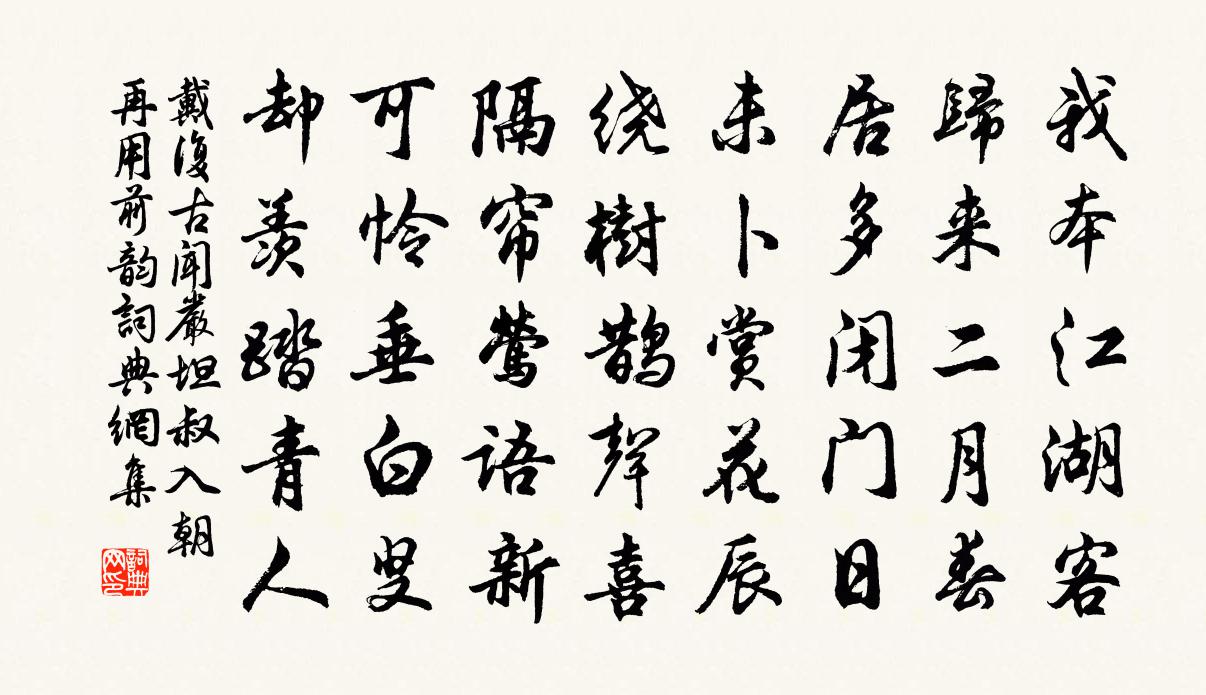 我本江湖客
歸来二月春
居多闭门日
未卜赏花辰
绕樹鹊聲喜
隔帘莺语新
可怜垂白叟
却羡踏青人
戴復古聞嚴坦叔入朝
再用前韵詞典網集
詞典网印